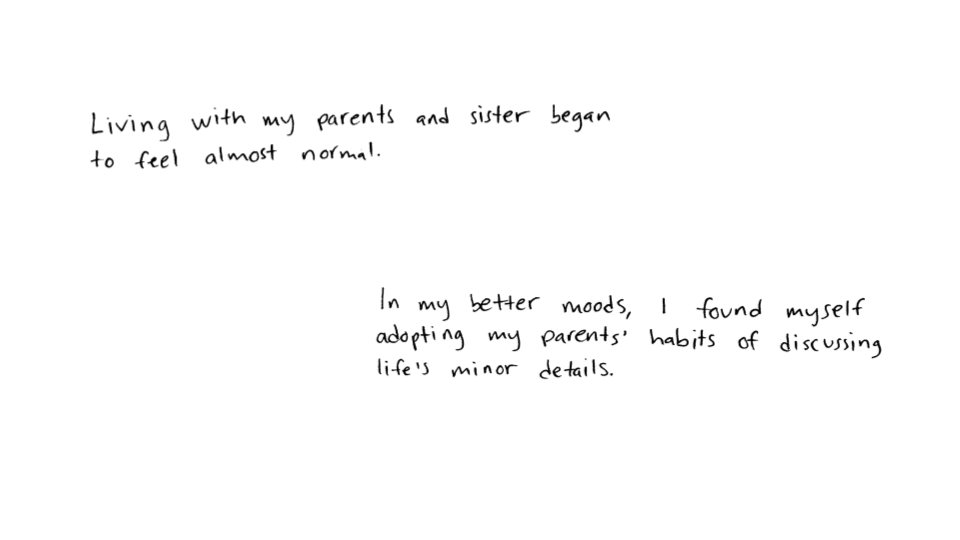 Living with my parents and sister began
to feel almost normal.
In my better moods, I found myself
adopting my parents' habits of discussing
life's minor details.